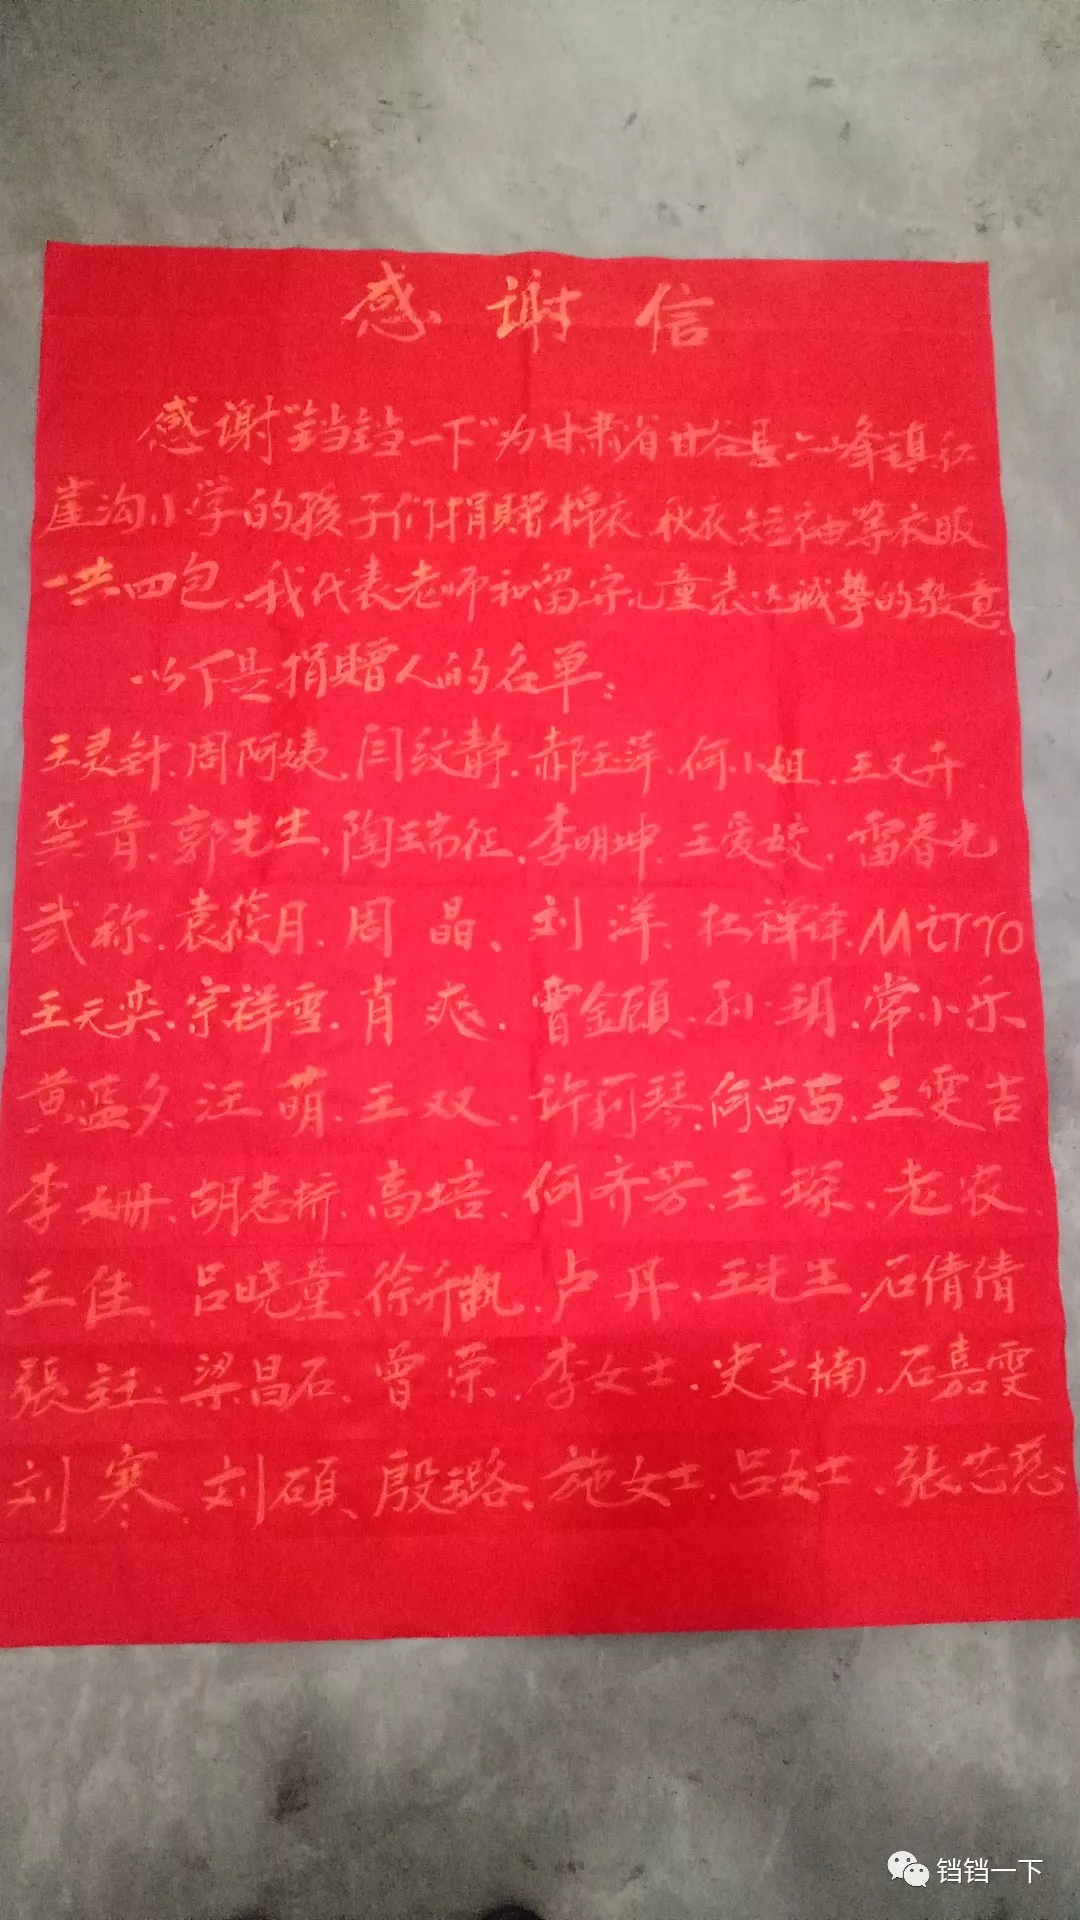 感谢信
感谢"铛铛一下"为甘肃省甘谷县六峰镇红
崖沟小学的孩子们捐赠棉衣.秋衣短袖等衣服
一共四包.我代表老师和留守儿童表达诚挚的敬意.
以下是捐赠人的名单:
王灵针.周阿姨.闫纹静.郝玉萍.何小姐.王又卉.
龚青.郭先生.陶瑞征.李明坤.王爱姣.雷春光
武称.袁筱月.周晶、刘洋.杜祥译.Mirro
王元奕.宗祥雪.肖爽.曹金硕.孙玥.常小乐
黄蓝夕.汪萌.王双.许珂琴.何苗苗.王雯吉
李姗.胡志桥.高培.何齐芳.王琛.老农.
王佳.吕晓童.徐升凯.卢丹.王先生.石倩倩
張鈺.梁昌石.曾荣.李女士.史文楠.石嘉雯
刘寒.刘碩.殷璐.施女士.吕女士.張芯慈
铛铛一下